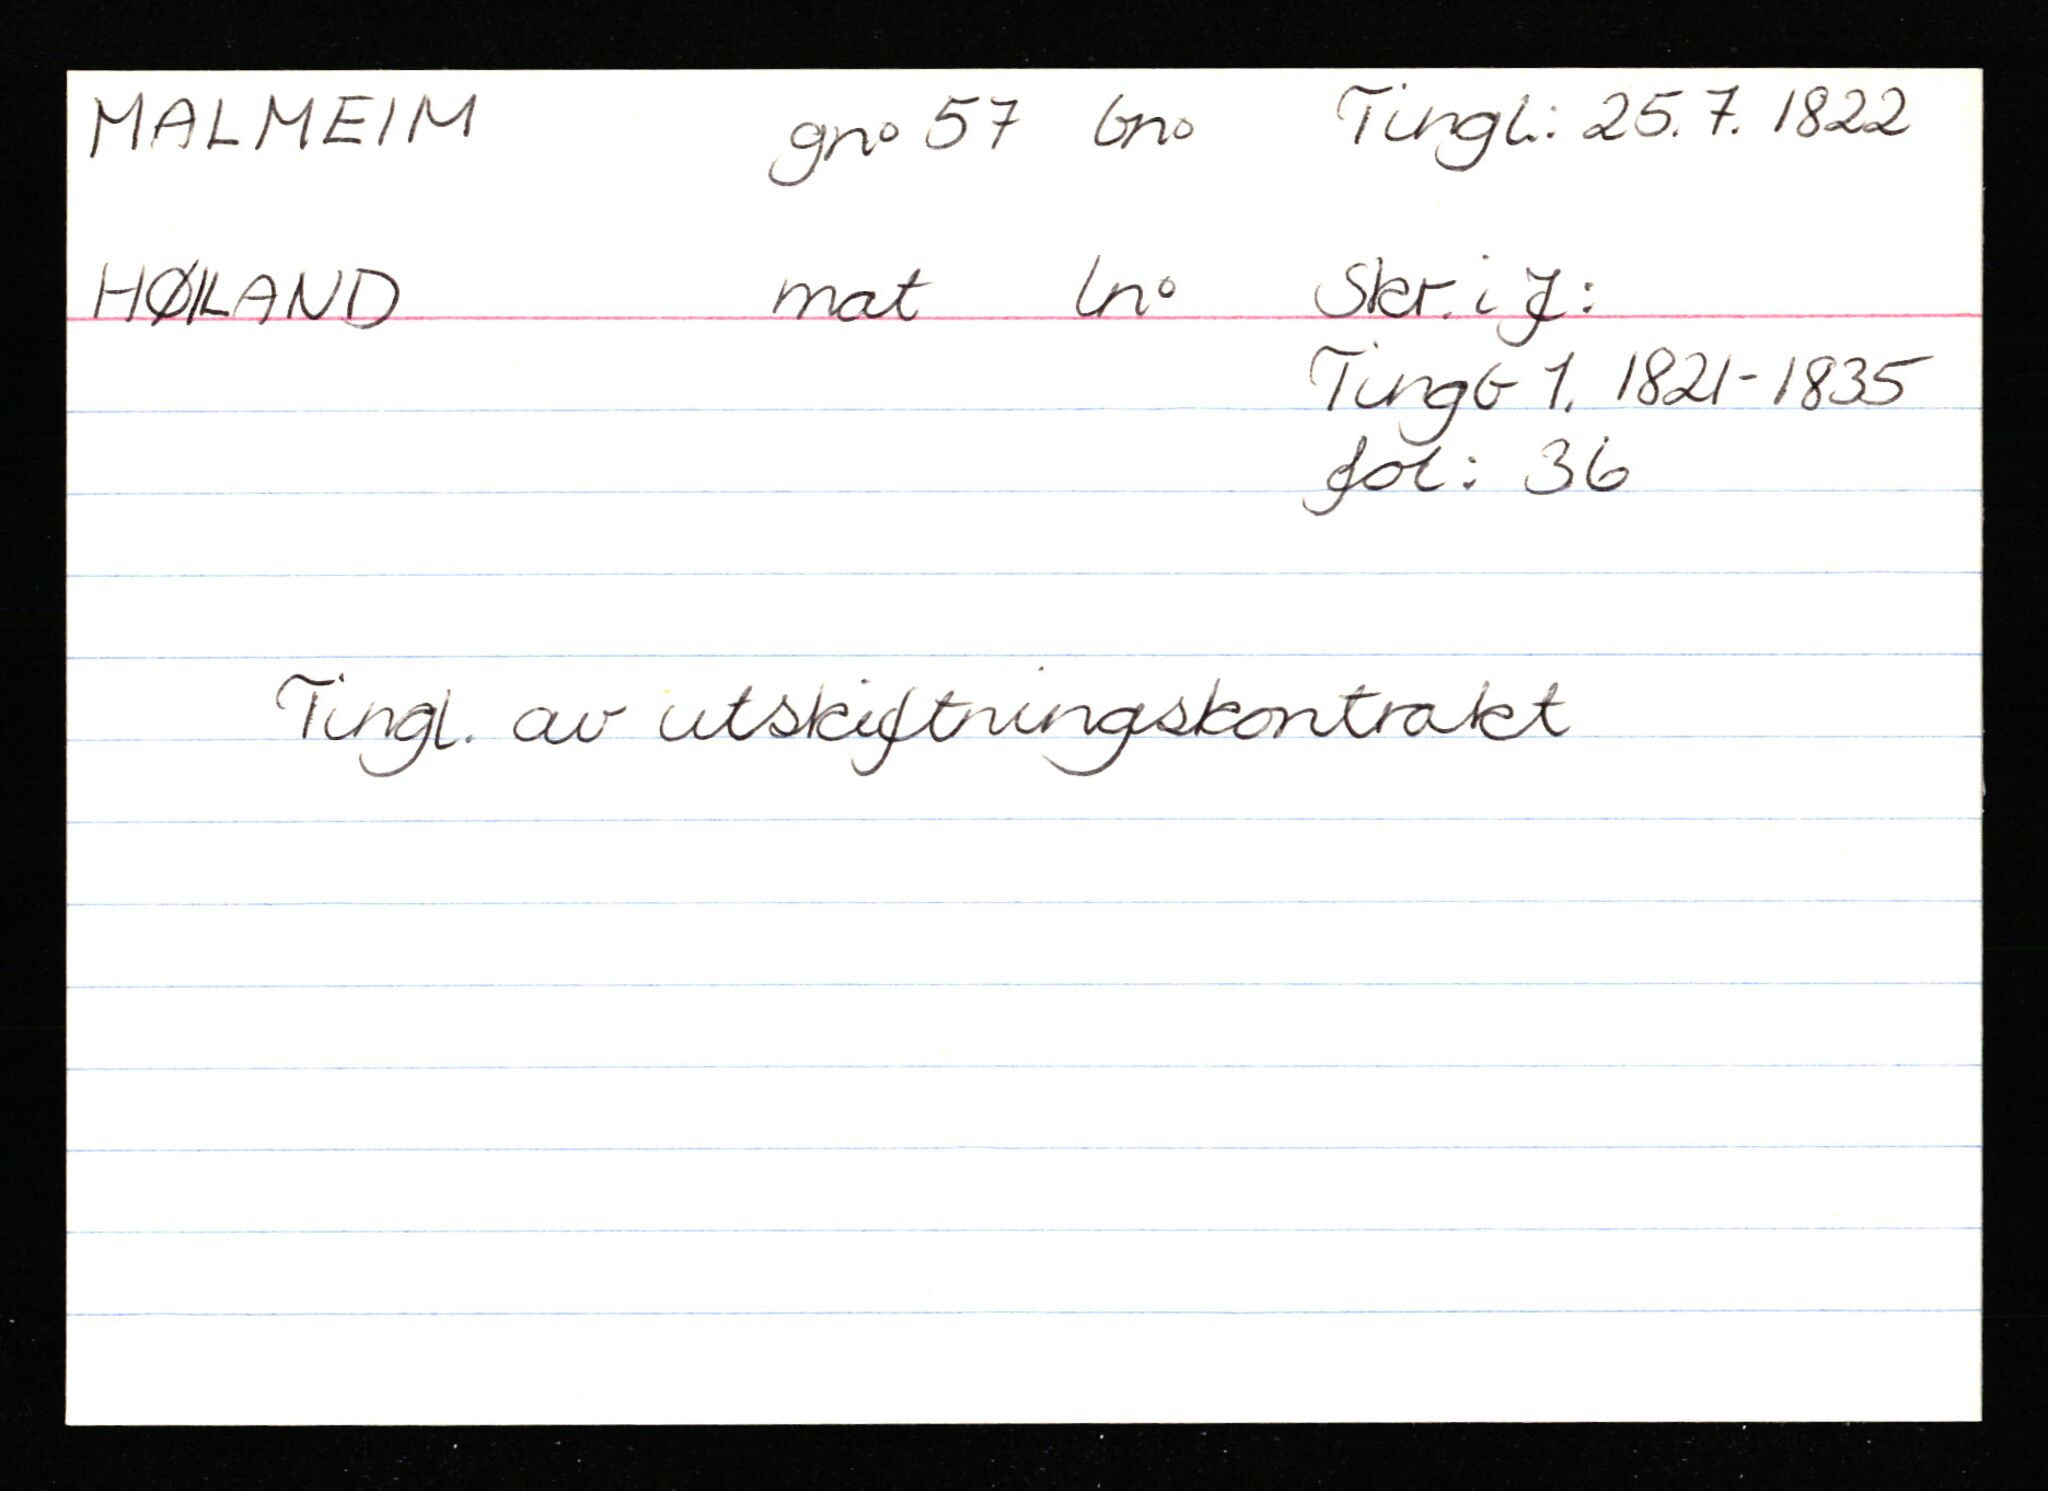 MALMEIM gno 57 bno Tingl.: 25.7.1822
HØILAND mat lno Skr. i J:
Tingb 1. 1821-1835
fol: 36
Tingl. av utskiftningskontrakt